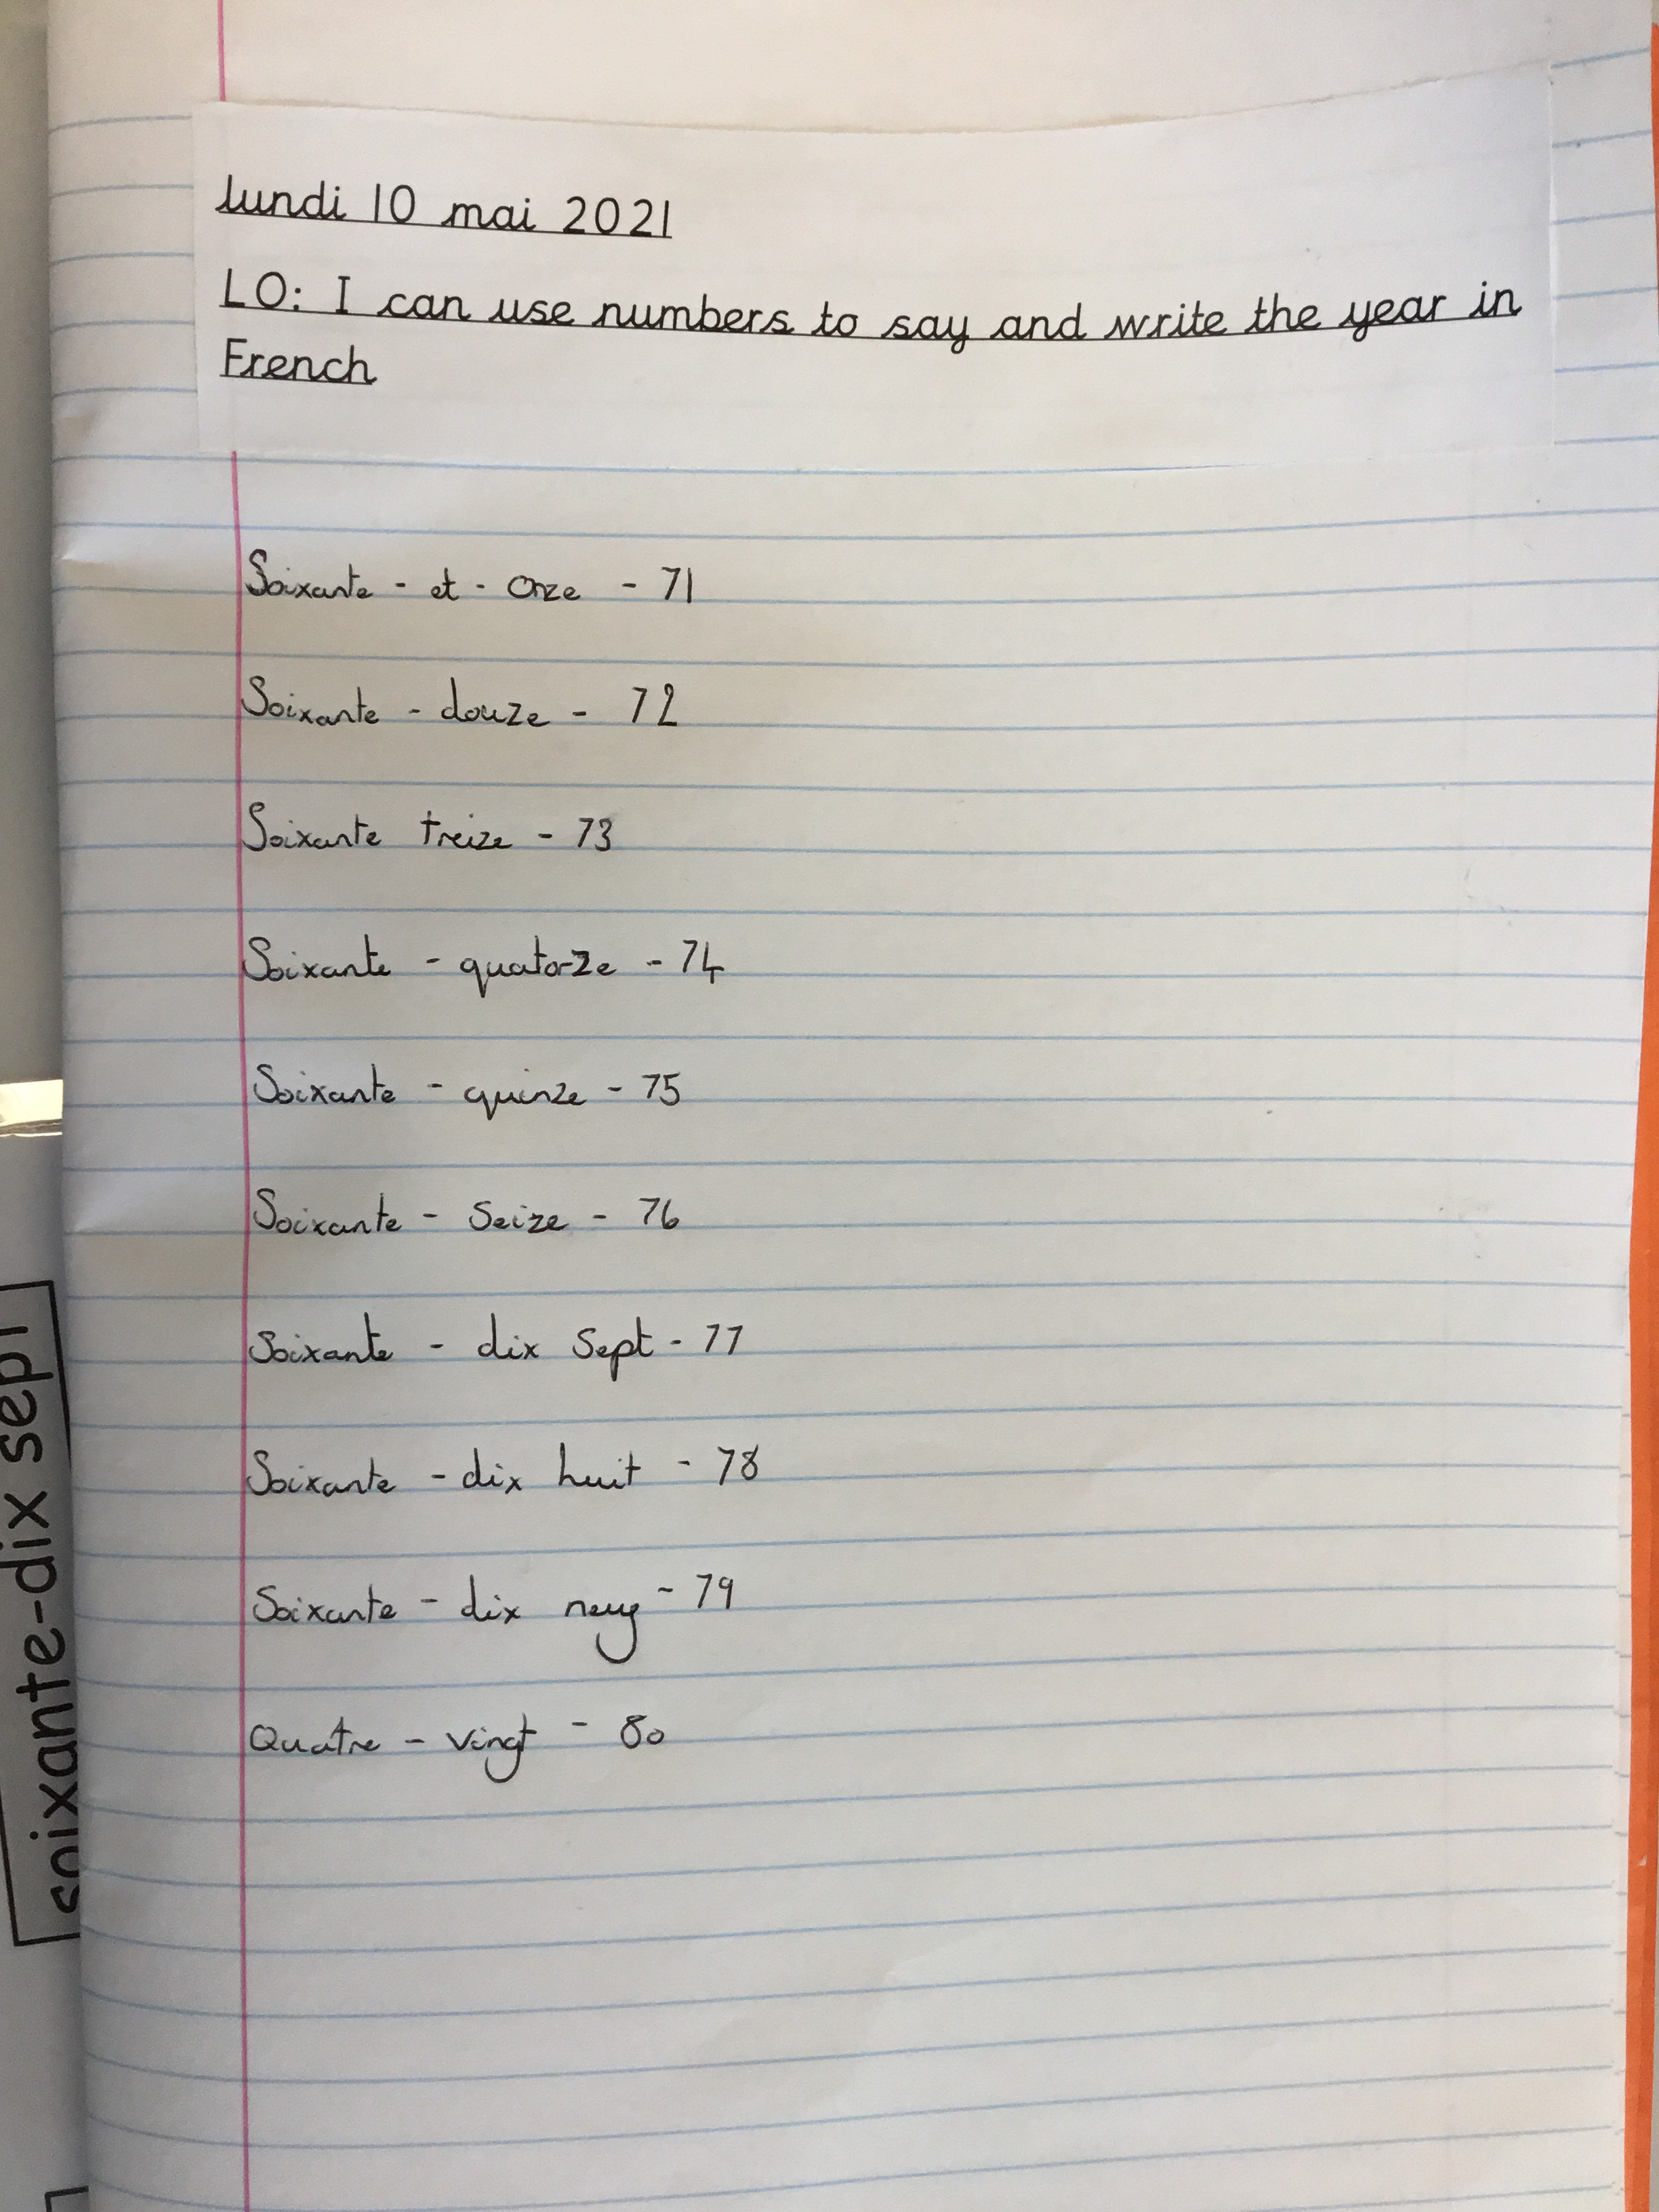 lundi 10 mai 2021
LO: I can use numbers to say and write the year in
French
Soixante - et - Onze - 71
Soixante - douze - 72
Soixante treize - 73
Soixante - quatorze - 74
Soixante - quinze - 75
Soixante - Seize - 76
Soixante - dix Sept - 77
Soixante - dix huit - 78
Soixante - dix neuf - 79
Quatre - vingt - 80
soixante-dix sept